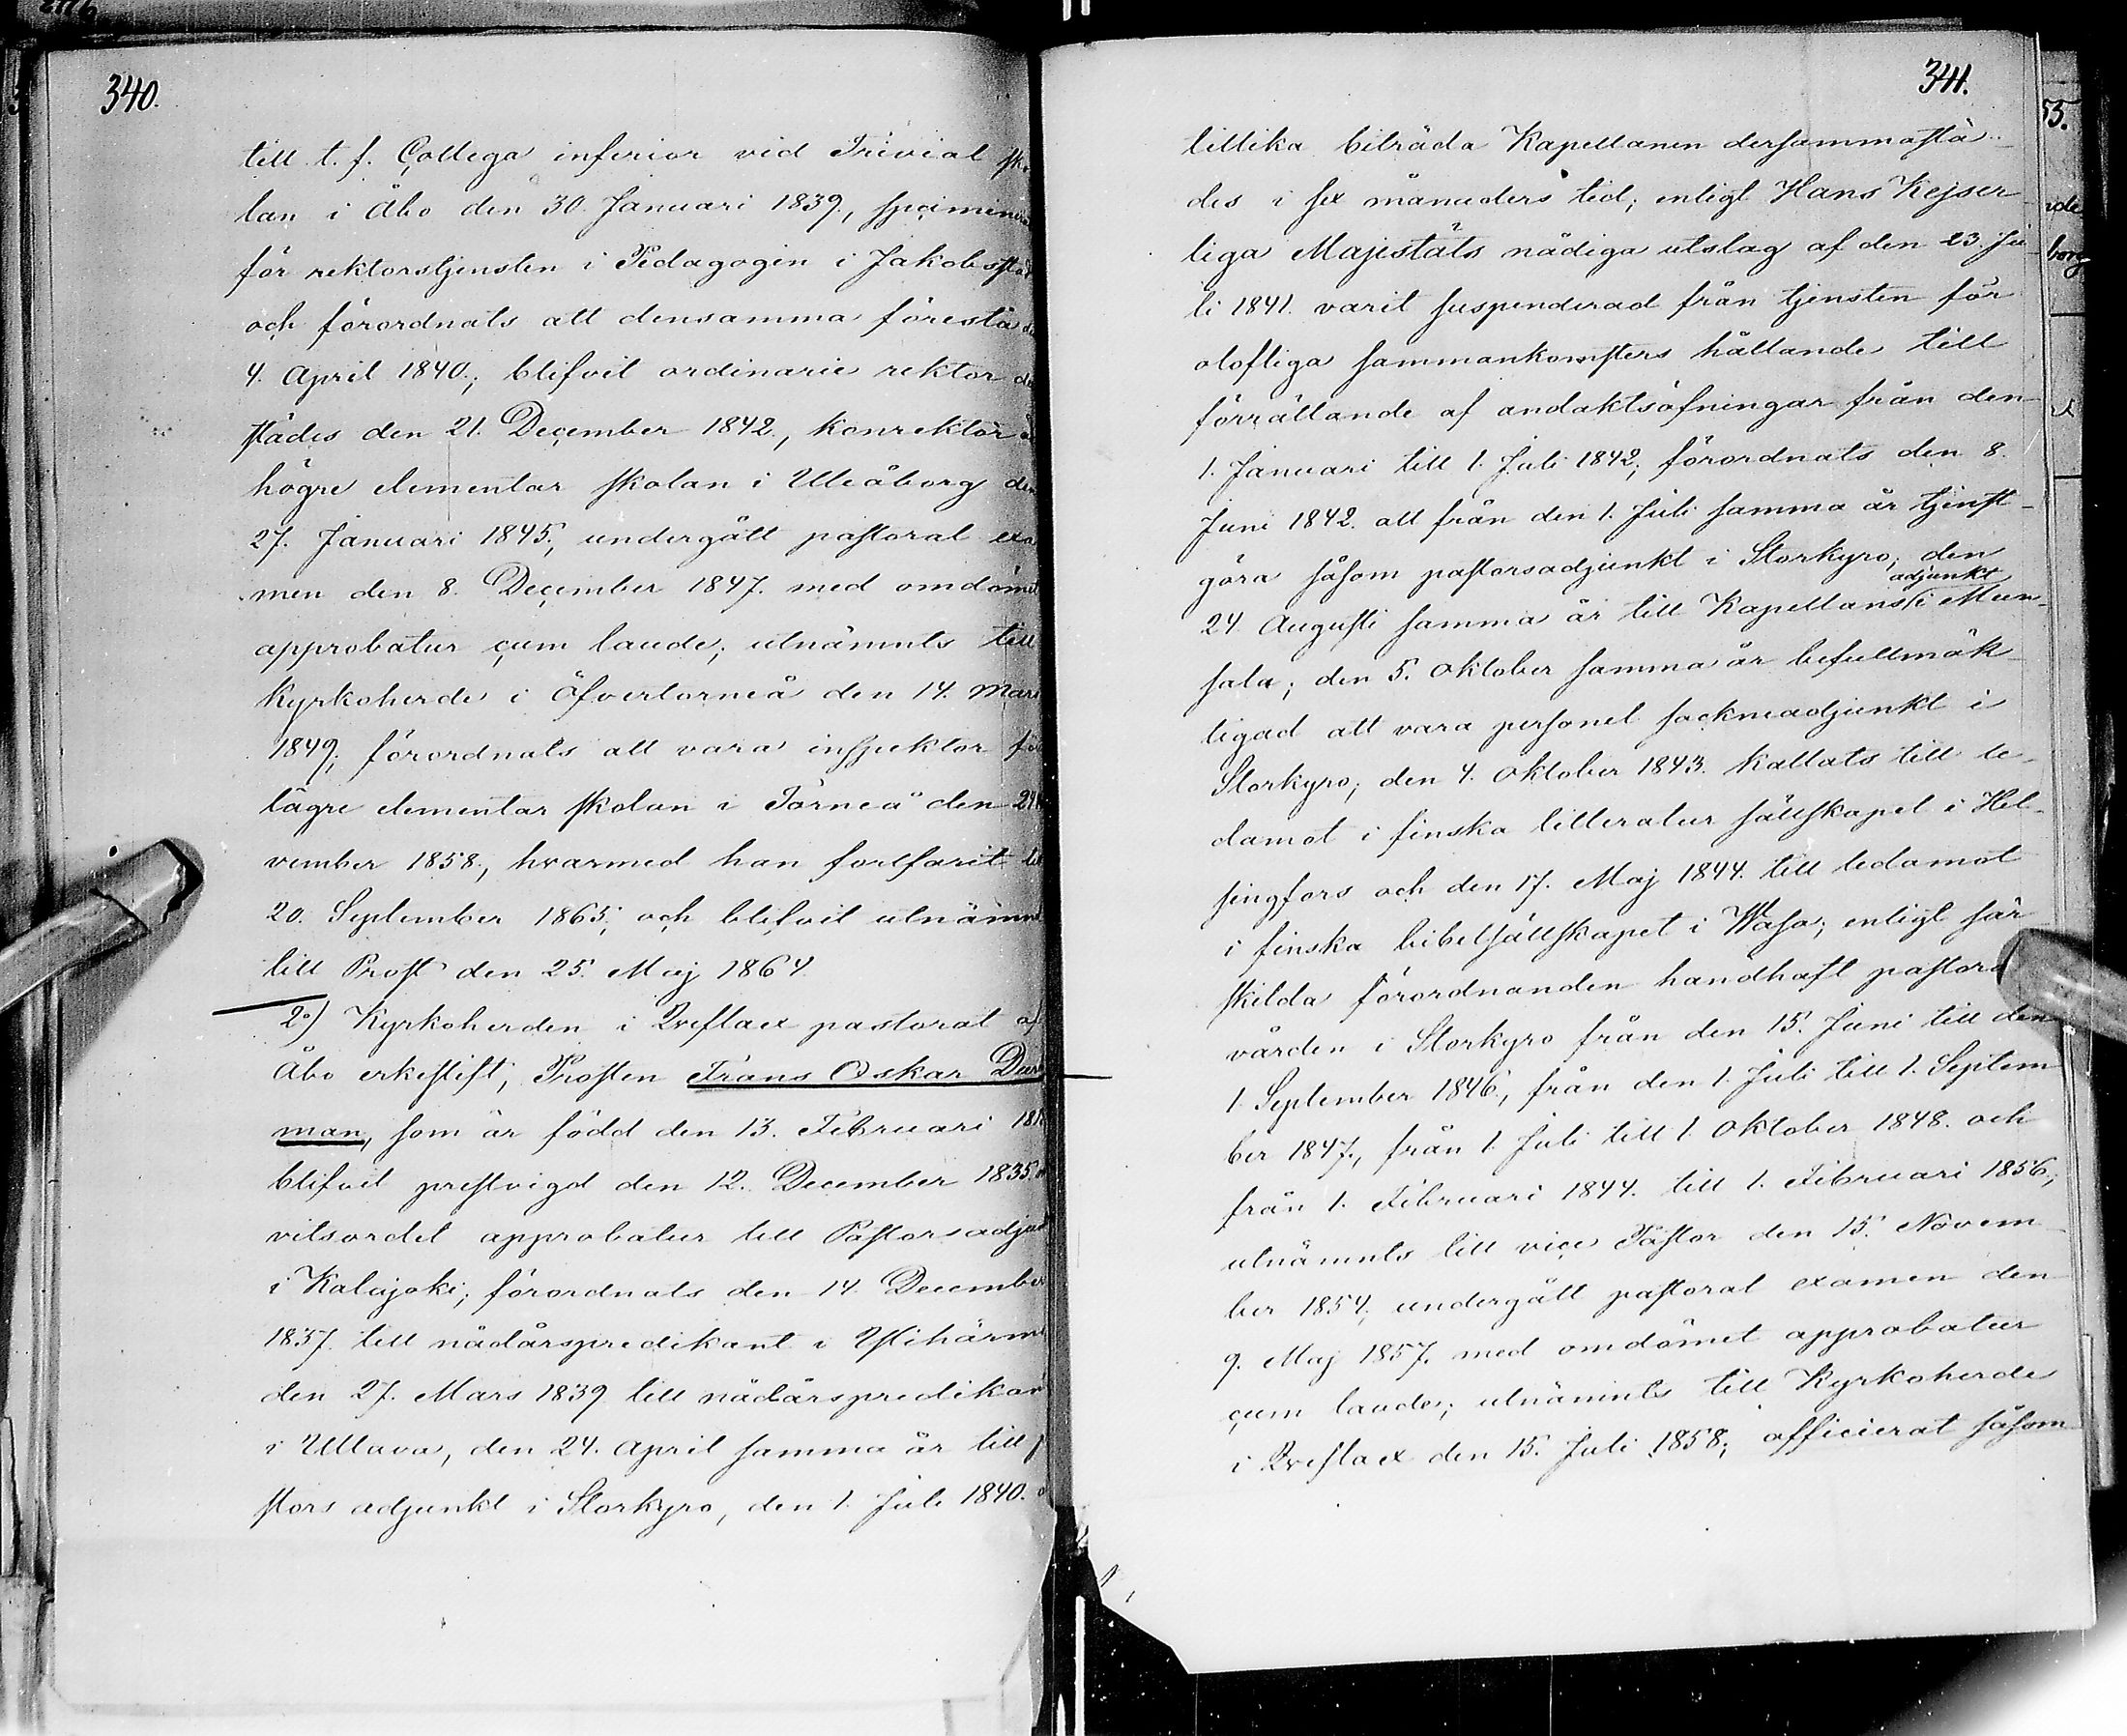 340.
till t. f. Collega inferior vid Trivial sko
lan i Åbo den 30. Januari 1839., specimine
för rektorstjensten i Pedagogin i Jakobstad
och förordnats att densamma förestå
4. April 1840.; blifvit ordinarie rektor
städes den 21. December 1842., konrektor
högre elementar skolan i Uleåborg den
27. Januari 1845.; undergått pastoral exa
men den 8. December 1847. med omdömet
approbatur cum laude; utnämnts till
Kyrkoherde i Öfvertorneå den 14. Mars
1849; förordnats att vara inspektor för
lägre elementar skolan i Torneå den
vember 1858., hvarmed han fortfarit till
20. September 1865; och blifvit utnämnd
till Prost den 25. Maj 1864.
2o) Kyrkoherden i Qveflax pastorat af
Åbo erkestift; Prosten Frans Oskar Dur
man, som är född den 13. Februari 18
blifvit prestvigd den 12. December 1835.
vitsordet approbatur till Pastorsadjunkt
i Kalajoki; förordnats den 14. December
1837. till nådårspredikant i Ylihärmä
den 27. Mars 1839 till nådårspredikant
i Ullava, den 24. April samma år till
stors adjunkt i Storkyro, den 1. Juli 1840.
341.
tillika biträda Kapellanen dersammastä-
des i sex månaders tid; enligt Hans Kejser-
liga Majestäts nådiga utslag af den 23. Ju-
li 1841. varit suspenderad från tjensten för
olofliga sammankomsters hållande till
förrättande af andaktsöfningar från den
1. Januari till 1. Juli 1842; förordnats den 8.
Juni 1842. att från den 1. Juli samma år tjenst-
göra såsom pastorsadjunkt i Storkyro; den
adjunkt
24 Augusti samma år till Kapellans i Mun-
sala; den 5. Oktober samma år befullmäk-
tigad att vara personel sockneadjunkt i
Storkyro; den 4. Oktober 1843. kallats till le-
damot i finska litteratur sällskapet i Hel-
singfors och den 17. Maj 1844. till ledamot
i finska bibelsällskapet i Wasa; enligt sär
skilda förordnanden handhaft pastors
vården i Storkyro från den 15. Juni till den
1. September 1846., från den 1. Juli till 1. Septem
ber 1847., från 1. Juli till 1. Oktober 1848. och
från 1. Februari 1844. till 1. Februari 1856.;
utnämnts till vice Pastor den 15. Novem-
ber 1854; undergått pastoral examen den
9. Maj 1857. med omdömet approbatur
cum laude; utnämnts till Kyrkoherde
i Qveflax den 15. Juli 1858; officierat såsom
55.